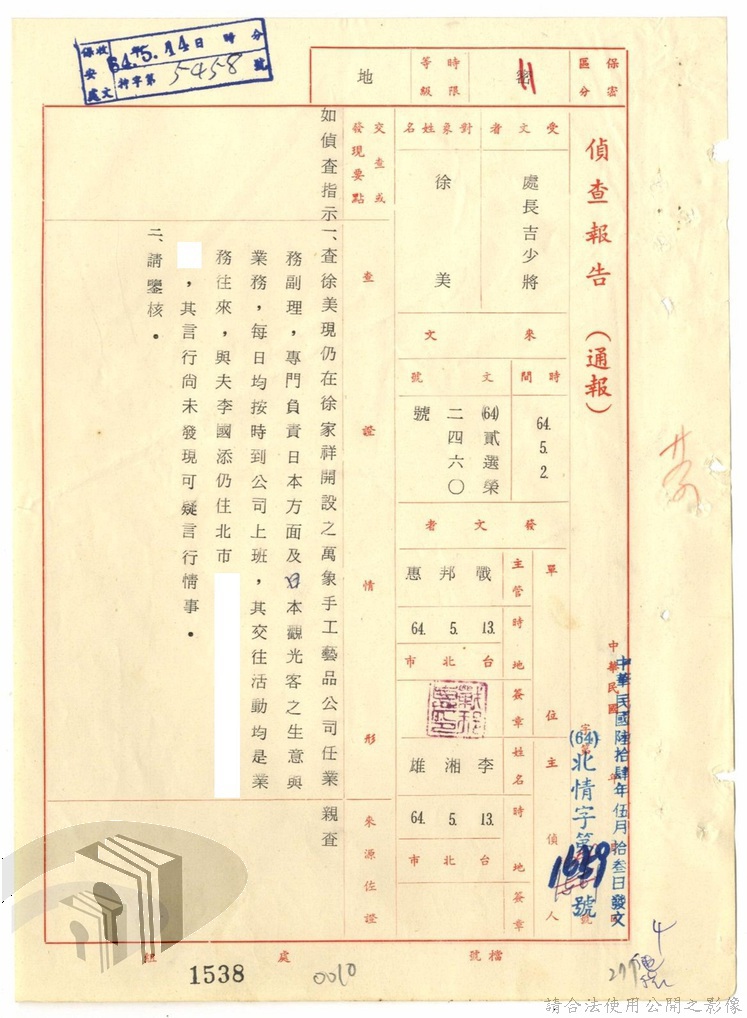 偵查報告（通報）
中華民國
中華民國陸拾肆年伍月拾叁日發文
(64)北情字第1659號
保密區分
密
時限等級
地
保安處收文
64年5月14日 時 分
持字第5458號
受文者
處長吉少將
對象姓名
徐美
來文
時間
64.5.2.
文號
(64)貳選榮二四六〇號
發文者
單位
主管
戰邦惠
時
64. 5. 13.
地
台北市
簽章
主偵人
姓名
李湘雄
時
64. 5. 13.
地
台北市
簽章
交查或發現要點
查證情形
來源佐證
如偵查指示
一、查徐美現仍在徐家祥開設之萬象手工藝品公司任業
務副理，專門負責日本方面及日本觀光客之生意與
業務，每日均按時到公司上班，其交往活動均是業
務往來，與夫李國添仍住北市
，其言行尚未發現可疑言行情事。
二、請鑒核。
親查
檔號
處
組
1538
0010
4
請合法使用公開之影像